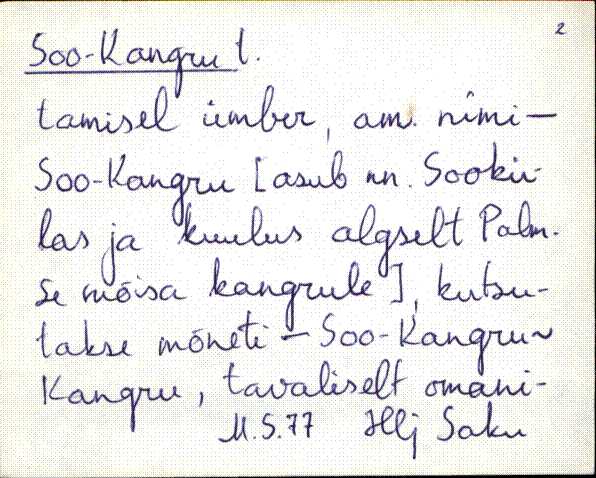 2
Soo-Kangru t.
tamisel ümber, am. nimi -
Soo-Kangru [asub nn. Sookü-
las ja kuulus algselt Palm-
se mõisa kangrule], kutsu-
takse mõneti - Soo-Kangru ~
Kangru, tavaliselt omani-
M.S. 77 Hlj Saku